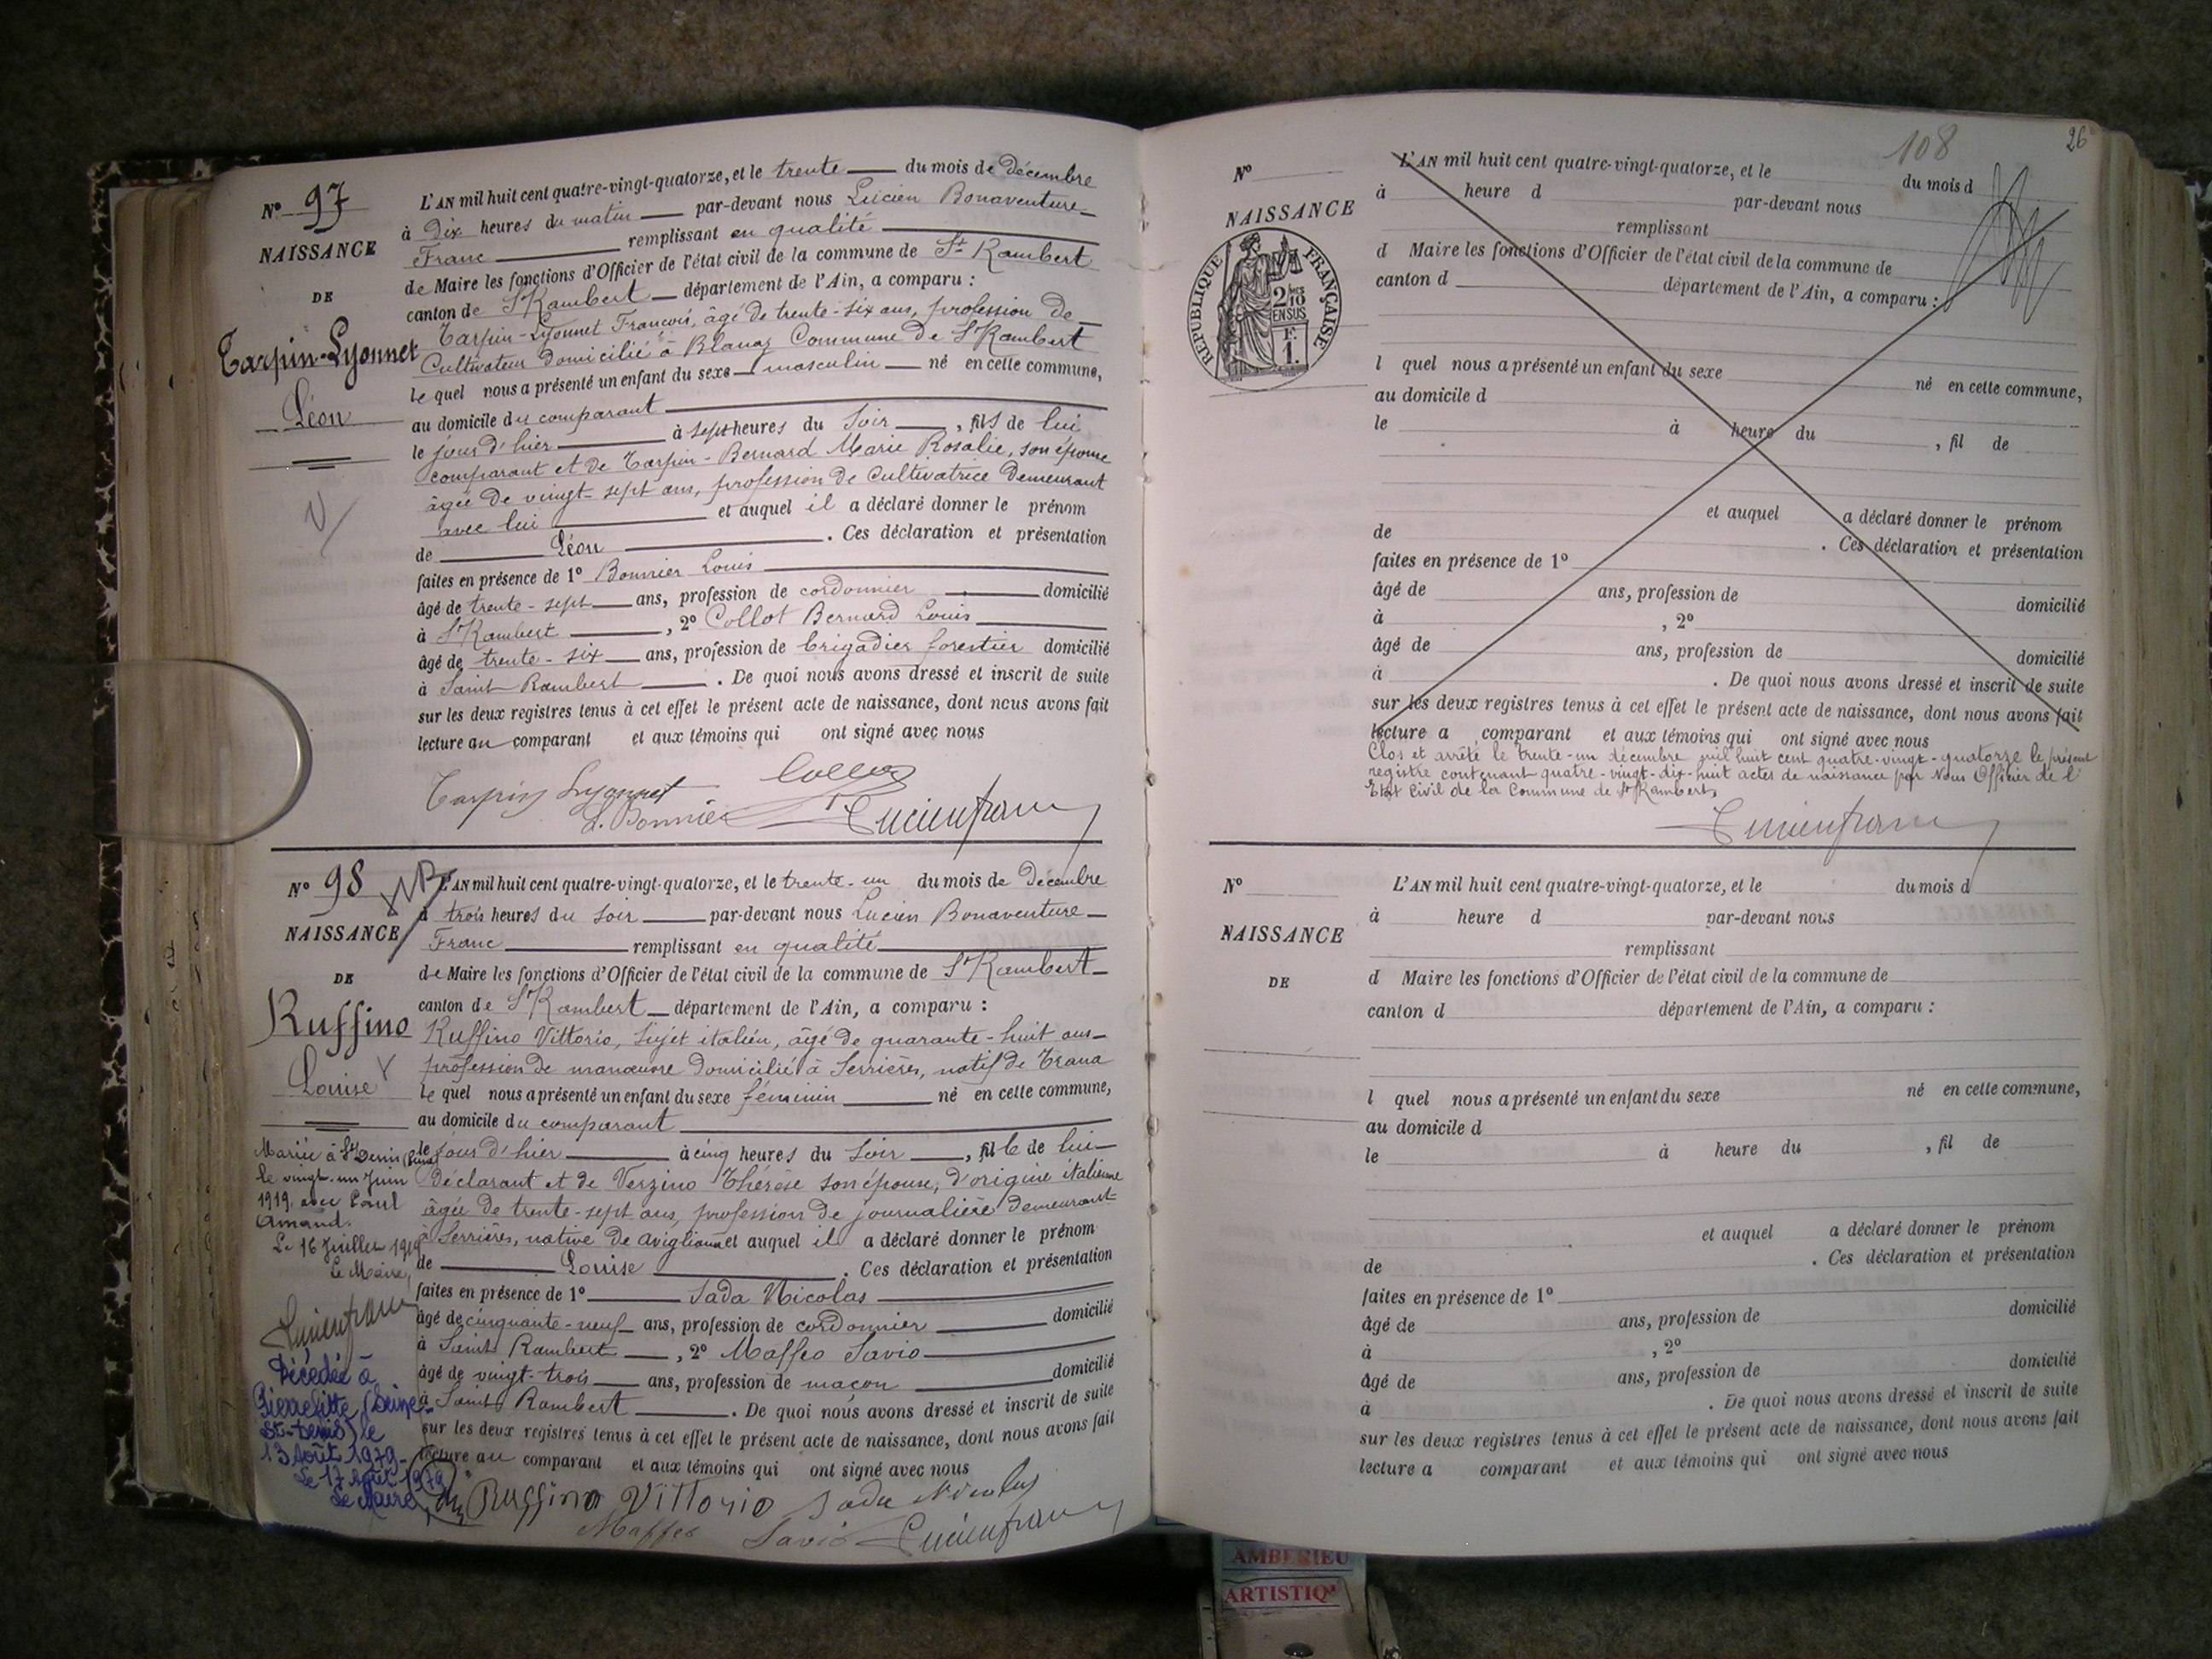 N° 97
NAISSANCE
DE
Tarpin-Lyonnet
Léon
L'AN mil huit cent quatre-vingt-quatorze, et le trente du mois de Décembre
à Dix heures du matin par-devant nous Lucien Bonaventure
Franc remplissant en qualité
de Maire les fonctions d'Officier de l'état civil de la commune de St Rambert
canton de St Rambert département de l'Ain, a comparu :
Tarpin-Lyonnet François, âgé de trente-six ans, profession de
Cultivateur domicilié à Blanaz Commune de St Rambert
Le quel nous a présenté un enfant du sexe masculin né en cette commune,
au domicile du comparant
le jour d'hier à sept heures du soir, fils de lui
comparant et de Tarpin-Bernard Marie Rosalie, son épouse
âgée de vingt-sept ans, profession de Cultivatrice Demeurant
avec lui et auquel il a déclaré donner le prénom
de Léon. Ces déclaration et présentation
faites en présence de 1° Bonnier Louis
âgé de trente-sept ans, profession de cordonnier domicilié
à St Rambert, 2° Collot Bernard Louis
âgé de trente-six ans, profession de brigadier forestier domicilié
à Saint Rambert. De quoi nous avons dressé et inscrit de suite
sur les deux registres tenus à cet effet le présent acte de naissance, dont nous avons fait
lecture au comparant et aux témoins qui ont signé avec nous
Tarpin Lyonnet Collot
L. Bonnier Lucien franc
N° 98
NAISSANCE
DE
Ruffino
Louise
L'AN mil huit cent quatre-vingt-quatorze, et le trente-un du mois de Décembre
à trois heures du soir par-devant nous Lucien Bonaventure
Franc remplissant en qualité
de Maire les fonctions d'Officier de l'état civil de la commune de St Rambert
canton de St Rambert département de l'Ain, a comparu :
Ruffino Vittorio, sujet italien, âgé de quarante-huit ans
profession de manœuvre domicilié à Serrières, natif de Trana
Le quel nous a présenté un enfant du sexe féminin né en cette commune,
au domicile du comparant
le jour d'hier à cinq heures du soir, fille de lui
Déclarant et de Verzino Thérèse son épouse, d'origine italienne
âgée de trente-sept ans, profession de journalière demeurant
à Serrières, native de Avigliana et auquel il a déclaré donner le prénom
de Louise. Ces déclaration et présentation
faites en présence de 1° Sada Nicolas
âgé de cinquante-neuf ans, profession de cordonnier domicilié
à Saint Rambert, 2° Maffeo Savio
âgé de vingt-trois ans, profession de maçon domicilié
à Saint Rambert. De quoi nous avons dressé et inscrit de suite
sur les deux registres tenus à cet effet le présent acte de naissance, dont nous avons fait
lecture au comparant et aux témoins qui ont signé avec nous
Ruffino Vittorio Sada Nicolas
Maffeo Savio Lucien franc
Mariée à St Denis (Seine)
le vingt-un Juin
1919 avec Paul
Amand.
Le 16 Juillet 1919
Le Maire,
Lucien franc
Décédée à
Pierrefitte (Seine-
St-Denis) le
13 Août 1979-
Le 17 Août 1979
Le Maire,
108
26
N°
NAISSANCE
REPUBLIQUE FRANÇAISE
2/10
EN SUS
F.
1.
L'AN mil huit cent quatre-vingt-quatorze, et le du mois d
à heure d par-devant nous
remplissant
d Maire les fonctions d'Officier de l'état civil de la commune de
canton d département de l'Ain, a comparu :
l quel nous a présenté un enfant du sexe né en cette commune,
au domicile d
le à heure du , fil de
et auquel a déclaré donner le prénom
de . Ces déclaration et présentation
faites en présence de 1°
âgé de ans, profession de domicilié
à , 2°
âgé de ans, profession de domicilié
à . De quoi nous avons dressé et inscrit de suite
sur les deux registres tenus à cet effet le présent acte de naissance, dont nous avons fait
lecture a comparant et aux témoins qui ont signé avec nous
Clos et arrêté le trente-un décembre mil huit cent quatre-vingt-quatorze le présent
registre contenant quatre-vingt-dix-huit actes de naissance par Nous Officier de l'
Etat Civil de la Commune de St Rambert,
Lucien franc
N°
NAISSANCE
DE
L'AN mil huit cent quatre-vingt-quatorze, et le du mois d
à heure d par-devant nous
remplissant
d Maire les fonctions d'Officier de l'état civil de la commune de
canton d département de l'Ain, a comparu :
l quel nous a présenté un enfant du sexe né en cette commune,
au domicile d
le à heure du , fil de
et auquel a déclaré donner le prénom
de . Ces déclaration et présentation
faites en présence de 1°
âgé de ans, profession de domicilié
à , 2°
âgé de ans, profession de domicilié
à . De quoi nous avons dressé et inscrit de suite
sur les deux registres tenus à cet effet le présent acte de naissance, dont nous avons fait
lecture a comparant et aux témoins qui ont signé avec nous
AMBERIEU
ARTISTIQ